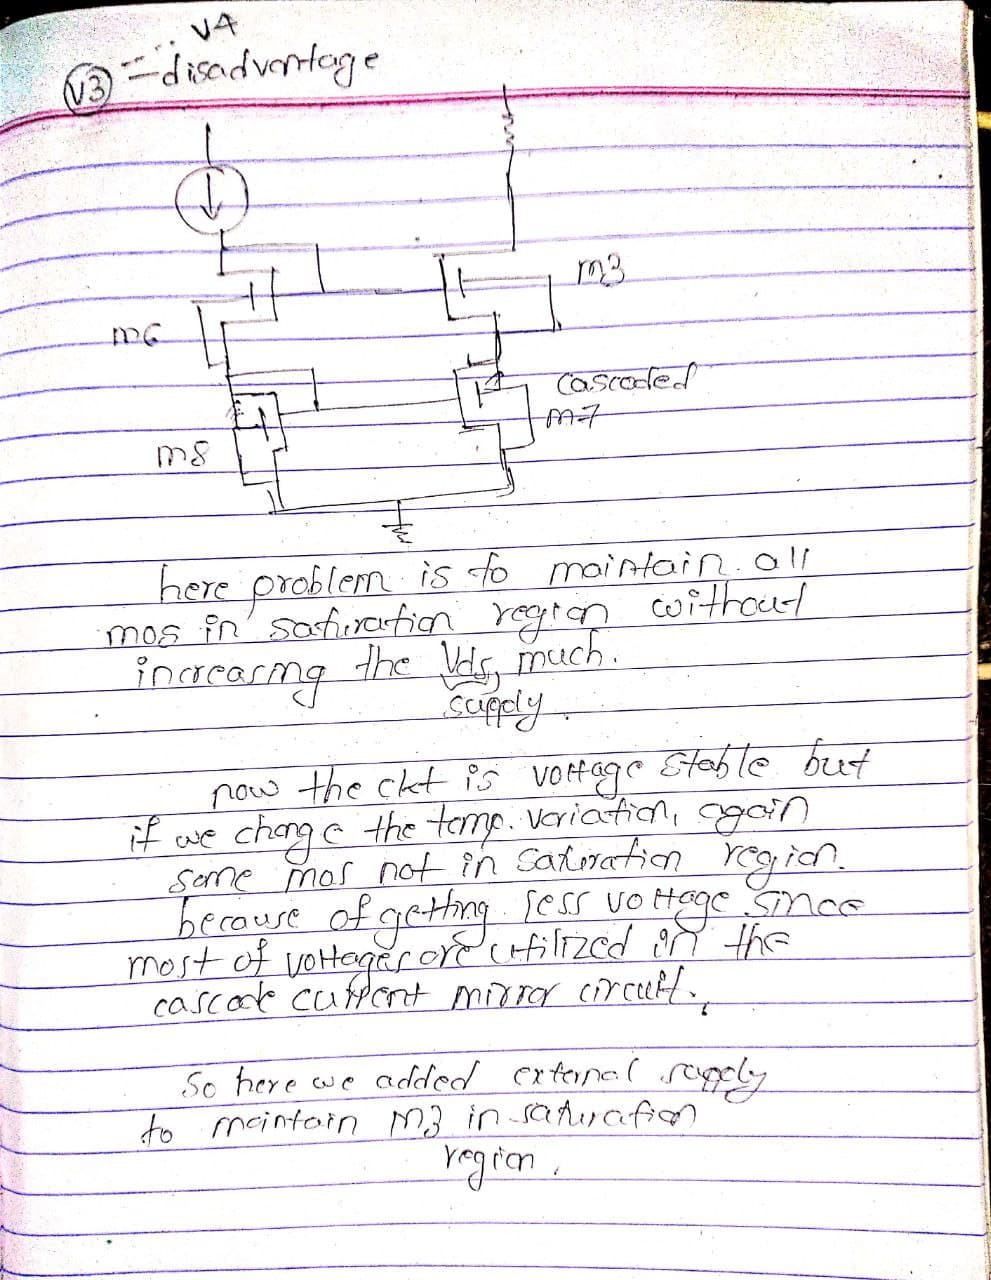 V4
V3 = disadvantage
m3
m6
cascoded
m7
m8
here problem is to maintain all
mos in saturation region without
increasing the Vds, much.
supply.
now the ckt is voltage stable but
if we change the temp. variation, again
some mos not in saturation region.
because of getting less voltage since
most of voltages are utilized in the
cascode current mirror circuit.
So here we added external supply
to maintain m3 in saturation
region.